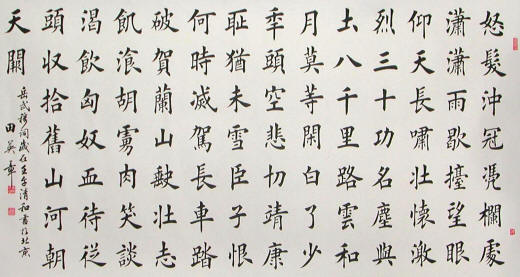 怒髮沖冠凴欄處
瀟瀟雨歇擡望眼
仰天長嘯壯懷激
烈三十功名塵與
圡八千里路雲和
月莫等閑白了少
秊頭空悲切靖康
恥猶未雪臣子恨
何時滅駕長車踏
破賀蘭山缺壯志
飢湌胡虜肉笑談
渴飲匈奴血待從
頭收拾舊山河朝
天闕
岳武穆詞歲在壬午清和書於北京
田英章